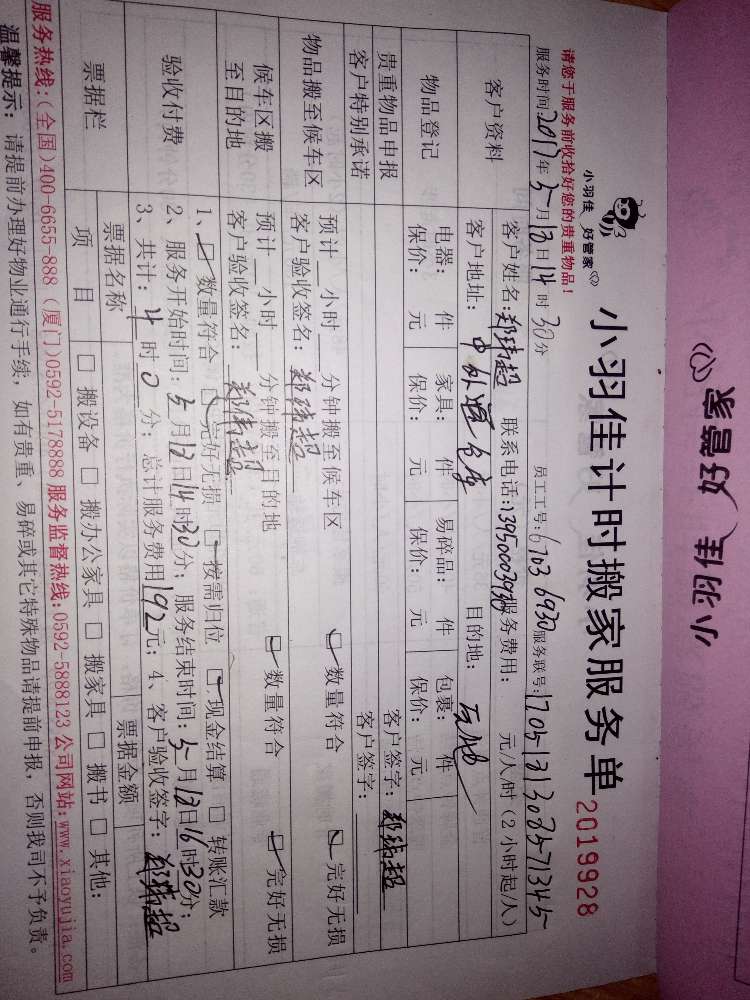 小羽佳 好管家
小羽佳 好管家
小羽佳计时搬家服务单
2019928
请您于服务前收拾好您的贵重物品！
服务时间:2017年5月12日14时30分 员工工号:6703 6930 服务联号:
客户资料
客户姓名:郑玮超 联系电话: 服务费用: 元/人/时(2小时起/人)
客户地址: 中外运仓库 目的地: 工地
物品登记
电器: 件 家具: 件 易碎品: 件 包裹: 件
保价: 元 保价: 元 保价: 元 保价: 元
贵重物品申报 客户签字: 郑玮超
客户特别承诺 客户签字:
物品搬至候车区
预计__小时__分钟搬至候车区 数量符合 完好无损
客户验收签名: 郑玮超
候车区搬至目的地
预计__小时__分钟搬至目的地 数量符合 完好无损
客户验收签名: 郑玮超
验收付费
1、数量符合 完好无损 按需归位 现金结算 □ 转账汇款
2、服务开始时间: 5月12日14时30分; 服务结束时间: 5月12日16时30分;
3、共计: 4时0分; 总计服务费用192元; 4、客户验收签字: 郑玮超
票据栏
票据名称 票据金额
项 目 □ 搬设备 □ 搬办公家具 □ 搬家具 □ 搬书 □ 其他:
服务热线:(全国)400-6655-888 (厦门)0592-5178888 服务监督热线:0592-5888123 公司网站:www.xiaoyujia.com
温馨提示: 请提前办理好物业通行手续, 如有贵重、易碎或其它特殊物品请提前申报, 否则我司不予负责。